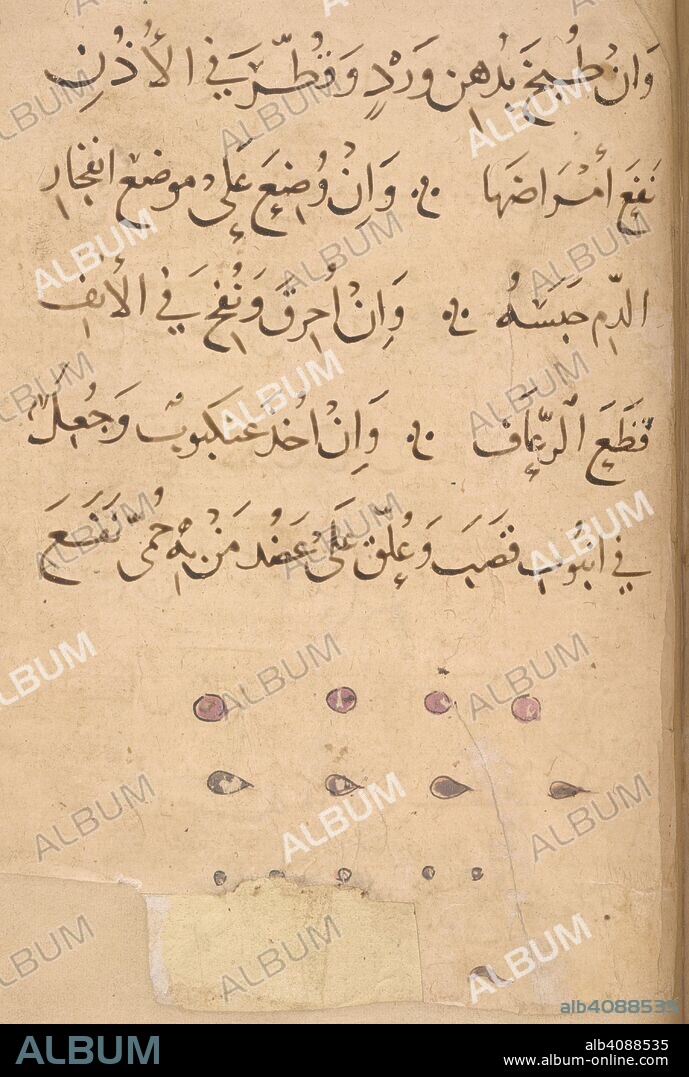 وَانْ طُبِخَ بِدُهنِ وَرْدٍ وَقُطِّرَ فِي الأُذُنِ
نَفَعَ أمْرَاضَهَا وَاِنْ وُضِعَ عَلَى موضع انفجار
الدّمِ حَبَسَهُ وَاِنْ اُحرِقَ وَنُفِخَ فِي الأنِف
قَطَعَ الرّعَاف وَاِنْ اُخذ عنكبوت وَجُعِلَ
فِي انبُوبِ قصَبَ وَعُلِّق عَلَى عَضُد مَنْ بِهِ حُمى نَفَعَ
ALBUM
alb4088535
ALBUM
alb4088535
www.album-online.com